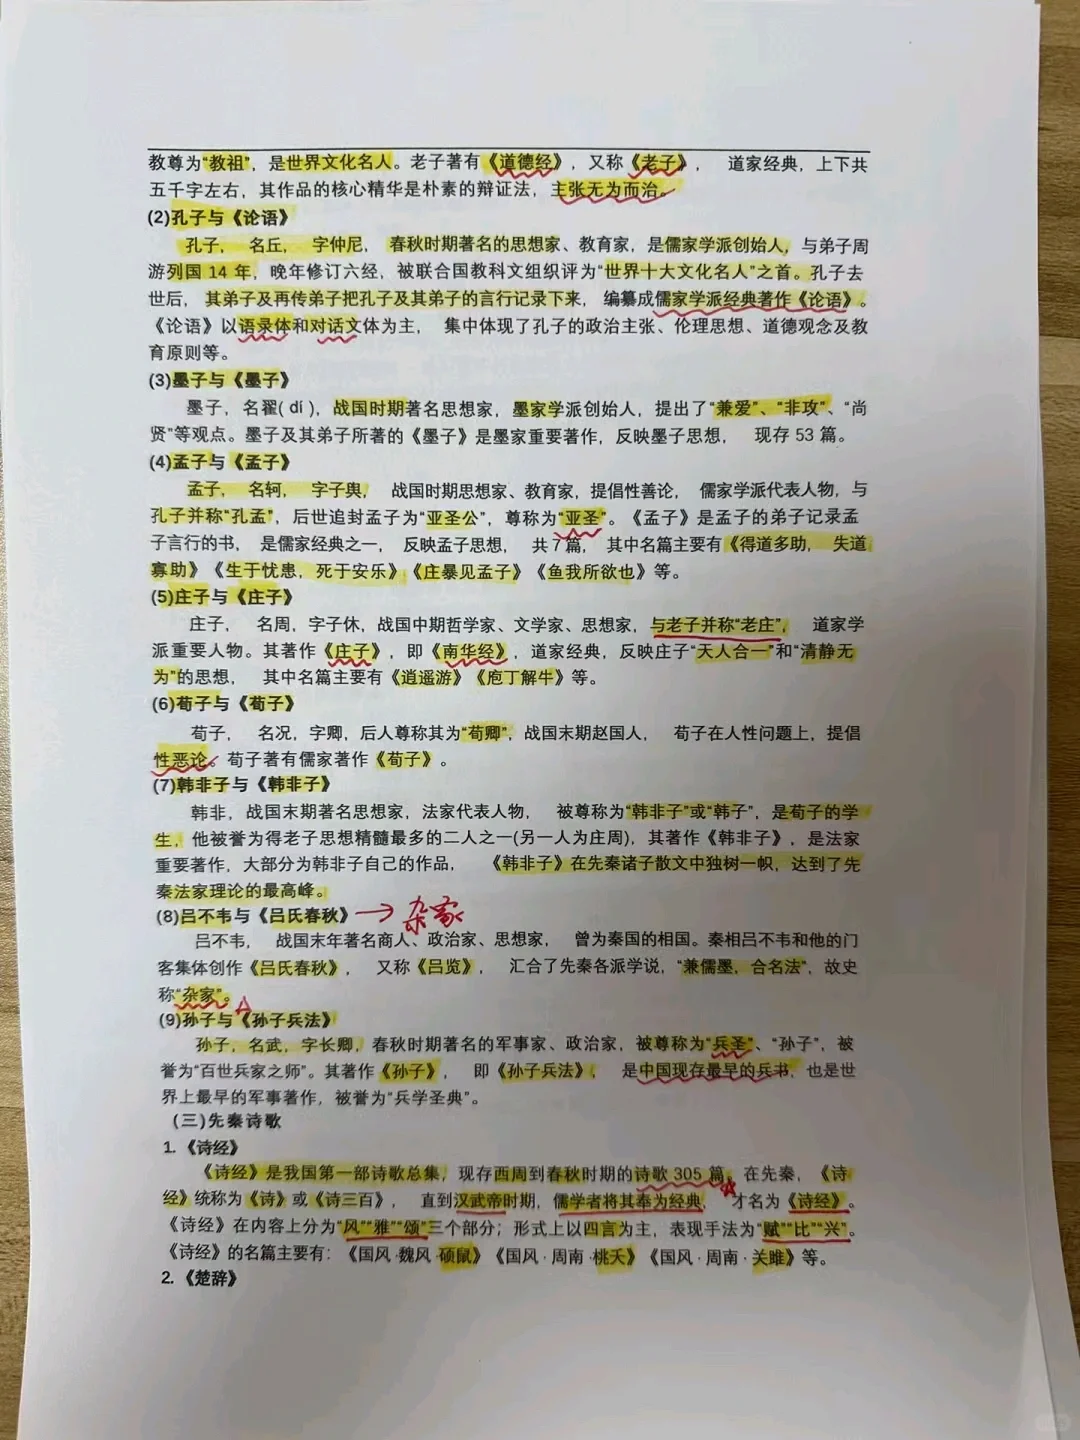 教尊为“教祖”，是世界文化名人。老子著有《道德经》，又称《老子》， 道家经典，上下共
五千字左右，其作品的核心精华是朴素的辩证法，主张无为而治。
(2)孔子与《论语》
孔子， 名丘， 字仲尼， 春秋时期著名的思想家、教育家，是儒家学派创始人，与弟子周
游列国 14 年，晚年修订六经，被联合国教科文组织评为“世界十大文化名人”之首。孔子去
世后， 其弟子及再传弟子把孔子及其弟子的言行记录下来， 编纂成儒家学派经典著作《论语》。
《论语》以语录体和对话文体为主， 集中体现了孔子的政治主张、伦理思想、道德观念及教
育原则等。
(3)墨子与《墨子》
墨子，名翟( dí )，战国时期著名思想家，墨家学派创始人，提出了“兼爱”、“非攻”、“尚
贤”等观点。墨子及其弟子所著的《墨子》是墨家重要著作，反映墨子思想， 现存 53 篇。
(4)孟子与《孟子》
孟子， 名轲， 字子舆， 战国时期思想家、教育家，提倡性善论， 儒家学派代表人物，与
孔子并称“孔孟”，后世追封孟子为“亚圣公”，尊称为“亚圣”。《孟子》是孟子的弟子记录孟
子言行的书， 是儒家经典之一， 反映孟子思想， 共 7 篇， 其中名篇主要有《得道多助， 失道
寡助》《生于忧患，死于安乐》《庄暴见孟子》《鱼我所欲也》等。
(5)庄子与《庄子》
庄子， 名周，字子休，战国中期哲学家、文学家、思想家，与老子并称“老庄”， 道家学
派重要人物。其著作《庄子》，即《南华经》，道家经典，反映庄子“天人合一”和“清静无
为”的思想， 其中名篇主要有《逍遥游》《庖丁解牛》等。
(6)荀子与《荀子》
荀子， 名况，字卿，后人尊称其为“荀卿”，战国末期赵国人， 荀子在人性问题上，提倡
性恶论。荀子著有儒家著作《荀子》。
(7)韩非子与《韩非子》
韩非，战国末期著名思想家，法家代表人物， 被尊称为“韩非子”或“韩子”，是荀子的学
生，他被誉为得老子思想精髓最多的二人之一(另一人为庄周)，其著作《韩非子》，是法家
重要著作，大部分为韩非子自己的作品， 《韩非子》在先秦诸子散文中独树一帜，达到了先
秦法家理论的最高峰。
(8)吕不韦与《吕氏春秋》→杂家
吕不韦， 战国末年著名商人、政治家、思想家， 曾为秦国的相国。秦相吕不韦和他的门
客集体创作《吕氏春秋》， 又称《吕览》， 汇合了先秦各派学说，“兼儒墨，合名法”，故史
称“杂家”。
(9)孙子与《孙子兵法》
孙子，名武，字长卿，春秋时期著名的军事家、政治家，被尊称为“兵圣”、“孙子”，被
誉为“百世兵家之师”。其著作《孙子》， 即《孙子兵法》， 是中国现存最早的兵书，也是世
界上最早的军事著作，被誉为“兵学圣典”。
(三)先秦诗歌
1.《诗经》
《诗经》是我国第一部诗歌总集，现存西周到春秋时期的诗歌 305 篇。在先秦，《诗
经》统称为《诗》或《诗三百》， 直到汉武帝时期，儒学者将其奉为经典， 才名为《诗经》。
《诗经》在内容上分为“风”“雅”“颂”三个部分；形式上以四言为主，表现手法为“赋”“比”“兴”。
《诗经》的名篇主要有：《国风·魏风·硕鼠》《国风·周南·桃夭》《国风·周南·关雎》等。
2.《楚辞》